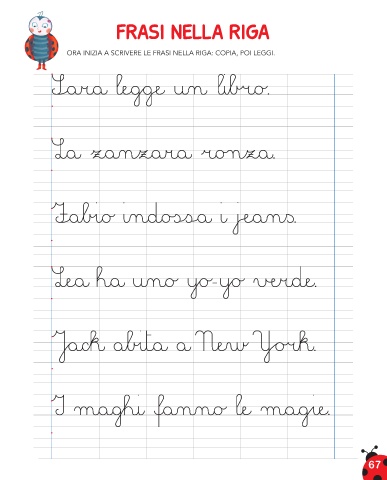 FRASI NELLA RIGA
ORA INIZIA A SCRIVERE LE FRASI NELLA RIGA: COPIA, POI LEGGI.
Sara legge un libro.
La zanzara ronza.
Fabio indossa i jeans.
Lea ha uno yo-yo verde.
Jack abita a New York.
I maghi fanno le magie.
67